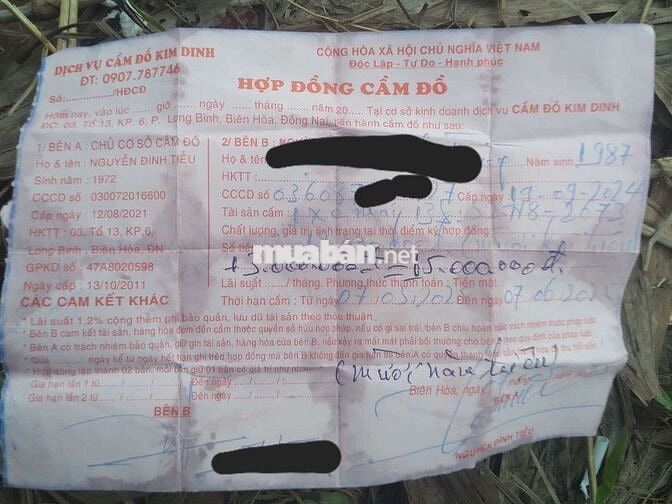 DỊCH VỤ CẦM ĐỒ KIM DINH
ĐT: 0907.787746
Số:............/HĐCĐ
CỘNG HÒA XÃ HỘI CHỦ NGHĨA VIỆT NAM
Độc Lập - Tự Do - Hạnh phúc
HỢP ĐỒNG CẦM ĐỒ
Hôm nay, vào lúc ...... giờ ...... ngày ...... tháng ...... năm 20..... Tại cơ sở kinh doanh dịch vụ CẦM ĐỒ KIM DINH
ĐC: 03, Tổ 13, KP. 6, P. Long Bình, Biên Hòa, Đồng Nai, tiến hành cầm đồ như sau:
1/ BÊN A : CHỦ CƠ SỞ CẦM ĐỒ
Họ & tên : NGUYỄN ĐÌNH TIỂU
Sinh năm : 1972
CCCD số : 030072016600
Cấp ngày : 12/08/2021
HKTT : 03, Tổ 13, KP.6,
Long Bình , Biên Hòa, ĐN
GPKD số : 47A8020598
Ngày cấp : 13/10/2011
CÁC CAM KẾT KHÁC
2/ BÊN B :
Họ & tên Năm sinh 1987
HKTT:
CCCD số: Cấp ngày 19-09-2024
Tài sản cầm: N8-2673
Chất lượng, giá trị tình trạng tại thời điểm ký hợp đồng:
Số tiền
muaban.net
+3.000.000 = 15.000.000đ.
Lãi suất ....../ tháng. Phương thức thanh toán : Tiền mặt
Thời hạn cầm : Từ ngày 07.05.2025 Đến ngày 07.06.2025
* Lãi suất 1,2% cộng thêm phí bảo quản, lưu dữ tài sản theo thỏa thuận
* Bên B cam kết tài sản, hàng hóa đem đến cầm thuộc quyền sở hữu hợp pháp, nếu có gì sai trái, bên B chịu hoàn toàn trách nhiệm trước pháp luật.
* Bên A có trách nhiệm bảo quản, giữ gìn tài sản, hàng hóa của bên B, nếu xảy ra mất mát phải bồi thường cho bên B
* Quá ........ ngày kể từ ngày hết hạn ghi trên hợp đồng mà bên B không đến gia hạn thì bên A có quyền thanh lý
* Hợp đồng lập thành 02 bản, mỗi bên giữ 01 bản có giá trị như nhau
Gia hạn lần 1 từ ....../....../...... Đến ngày ....../....../......
Gia hạn lần 2 từ ....../....../...... Đến ngày ....../....../......
(Mười năm triệu)
Biên Hòa, ngày
BÊN B
BÊN A
NGUYỄN ĐÌNH TIỂU